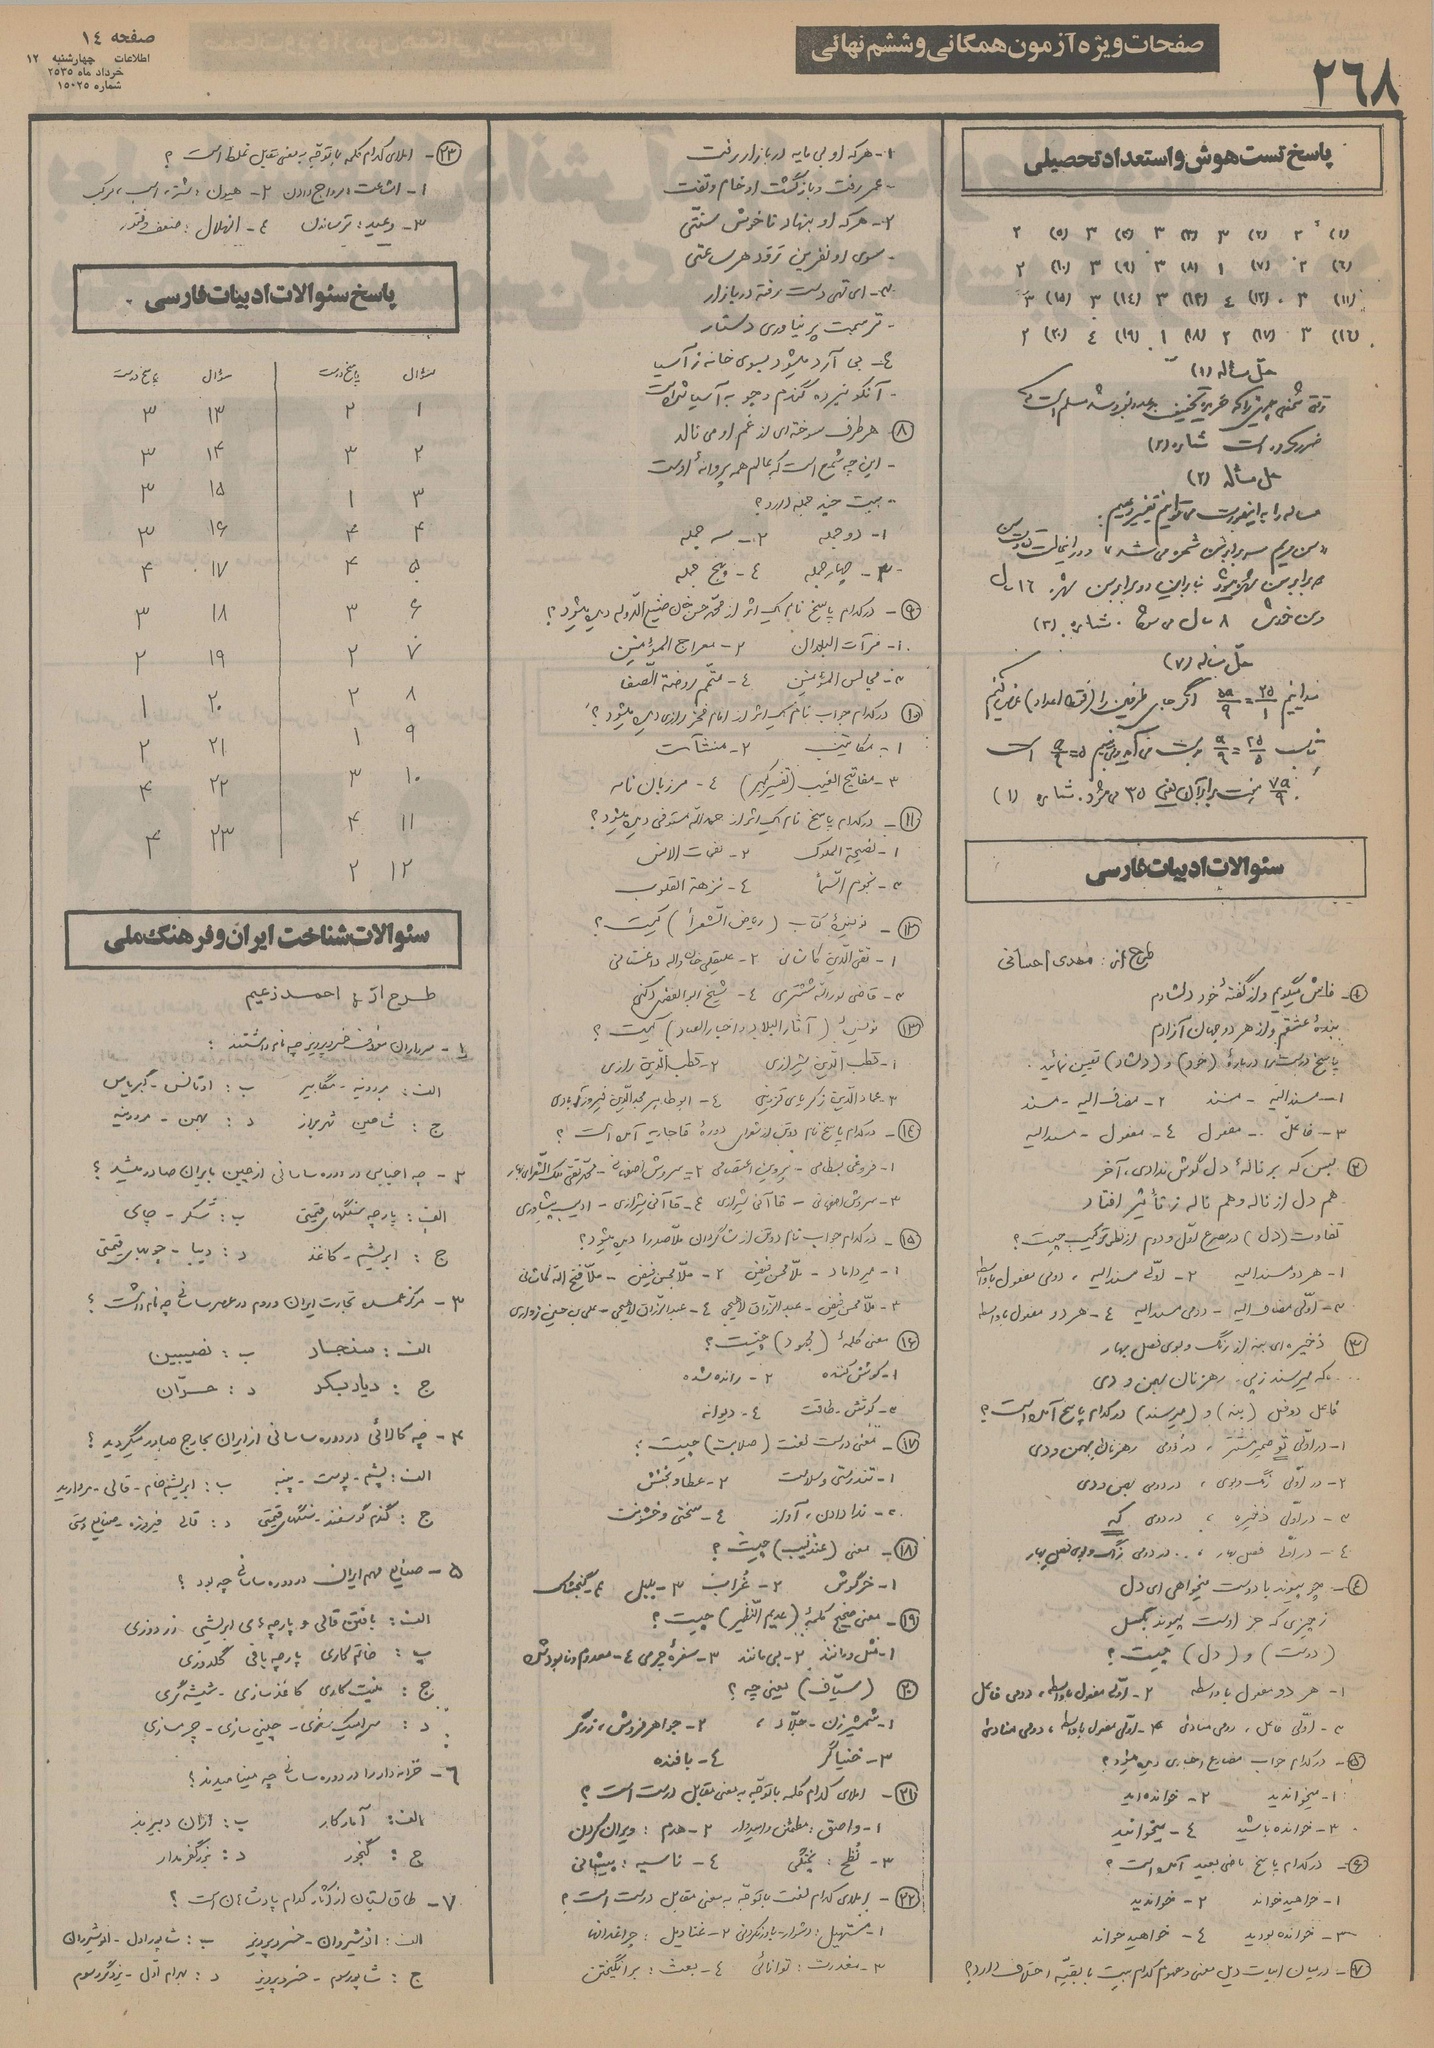 صفحات ویژه آزمون همگانی و ششم نهائی
۲۶۸
صفحه ۱٤
اطلاعات چهارشنبه ۱۲
خرداد ماه ۲۵۳۵
شماره ۱۵۰۲۵
پاسخ تست هوش و استعداد تحصیلی
(۱) ۲ (۲) ۳ (۳) ۳ (۴) ۳ (۵) ۲
(۶) ۲ (۷) ۱ (۸) ۳ (۹) ۳ (۱۰) ۲
(۱۱) ۳ (۱۲) ٤ (۱۳) ۳ (۱٤) ۳ (۱۵) ۳
(۱۶) ۳ (۱۷) ۲ (۱۸) ۱ (۱۹) ٤ (۲۰) ۲
حل مساله (۱)
شماره (۲)
حل مساله (۲)
مساله را به اینصورت میتوانیم تفسیر دهیم:
حل مساله (۷)
سئوالات ادبیات فارسی
طرح از: مهدی احسانی
۱- فاش میگویم و از گفتهٔ خود دلشادم
بندهٔ عشقم و از هر دو جهان آزادم
پاسخ درست را دربارهٔ (خود) و (دلشاد) تعیین نمائید.
۱- مسندالیه - مسند ۲- مضاف الیه - مسند
۳- فاعل - مفعول ٤- مفعول - مسندالیه
۲- بس که بر نالهٔ دل گوش ندادی، آخر
هم دل از ناله و هم ناله ز تأثیر افتاد
تفاوت (دل) در مصرع اول و دوم از نظر ترکیب چیست؟
۱- هر دو مسندالیه ۲- اولی مسندالیه، دومی مفعول باواسطه
۳- اولی مضاف الیه - دومی مسندالیه ٤- هر دو مفعول باواسطه
۳- ذخیره ای بنه از رنگ و بوی فصل بهار
که میرسند ز پی، رهزنان بهمن و دی
فاعل دو فعل (بنه) و (میرسند) در کدام پاسخ آمده است؟
۱- در اولی تو ضمیر مستتر، در دومی رهزنان بهمن و دی
۲- در اولی رنگ و بوی، در دومی بهمن و دی
۳- در اولی ذخیره، در دومی که
٤- در اولی فصل بهار، در دومی رنگ و بوی فصل بهار
٤- چو پیوند با دوست میخواهی ای دل
ز چیزی که جز اوست پیوند بگسل
(دوست) و (دل) چیست؟
۱- هر دو مفعول باواسطه ۲- اولی مفعول باواسطه، دومی فاعل
۳- اولی فاعل، دومی منادی ۴- اولی مفعول باواسطه، دومی منادی
۵- در کدام جواب مضارع اخباری دیده میشود؟
۱- میخواندید ۲- خوانده اید
۳- خوانده باشید ٤- میخوانید
۶- در کدام پاسخ ماضی بعید آمده است؟
۱- خواهید خواند ۲- خواندید
۳- خوانده بودید ٤- خواهید خواند
۷- در میان ابیات ذیل معنی و مفهوم کدام بیت با بقیه اختلاف دارد؟
۱- هر که او بی مایه در بازار رفت
- عمر رفت و بازگشت او خام و تفت
۲- هر که او بنهاد ناخوش سنتی
- سوی او نفرین رود هر ساعتی
۳- ای تهی دست رفته در بازار
- ترسمت پر نیاوری دستار
٤- بی آرد میشود بسوی خانه ز آسیا
- آنکو نبرده گندم و جو به آسیا شده است
۸- هر طرف سوخته ای از غم او می نالد
- این چه شمع است که عالم همه پروانهٔ اوست
- بیت چند جمله دارد؟
۱- دو جمله ۲- سه جمله
۳- چهار جمله ٤- پنج جمله
۹- در کدام پاسخ نام یک اثر از محمد حسن خان صنیع الدوله دیده میشود؟
۱- مرآت البلدان ۲- معراج المؤمنین
۳- مجالس المؤمنین ٤- متمم روضة الصفا
۱۰- در کدام جواب نام یک اثر از امام فخر رازی دیده میشود؟
۱- مکاتیب ۲- منشآت
۳- مفاتیح الغیب (تفسیر کبیر) ٤- مرزبان نامه
۱۱- در کدام پاسخ نام یک اثر از حمدالله مستوفی دیده میشود؟
۱- نصیحة الملوک ۲- نفحات الانس
۳- نجوم السماء ٤- نزهة القلوب
۱۲- نویسندهٔ کتاب (ریاض الشعراء) کیست؟
۱- تقی الدین کاشانی ۲- علیقلی خان واله داغستانی
۳- قاضی نورالله شوشتری ٤- شیخ ابوالفضل دکنی
۱۳- نویسندهٔ (آثار البلاد و اخبار العباد) کیست؟
۱- قطب الدین شیرازی ۲- قطب الدین رازی
۳- عمادالدین زکریای قزوینی ٤- ابوطاهر مجدالدین فیروزآبادی
۱٤- در کدام پاسخ نام دو تن از شعرای دورهٔ قاجاریه آمده است؟
۱- فروغی بسطامی - پروین اعتصامی ۲- سروش اصفهانی - محمدتقی ملک الشعرای بهار
۳- سروش اصفهانی - قاآنی شیرازی ٤- قاآنی شیرازی - ادیب پیشاوری
۱۵- در کدام جواب نام دو تن از شاگردان ملاصدرا دیده میشود؟
۱- میرداماد - ملا محسن فیض ۲- ملا محسن فیض - ملا فتح الله کاشانی
۳- ملا محسن فیض - عبدالرزاق لاهیجی ٤- عبدالرزاق لاهیجی - علی بن حسین زواری
۱۶- معنی کلمهٔ (مجهود) چیست؟
۱- کوشش کننده ۲- رانده شده
۳- کوشش - طاقت ٤- دیوانه
۱۷- معنی درست لغت (صلابت) چیست؟
۱- تندرستی و سلامت ۲- عطا و بخشش
۳- ندا دادن، آواز ٤- سختی و خشونت
۱۸- معنی (عندلیب) چیست؟
۱- خرگوش ۲- غراب ۳- بلبل ٤- گنجشک
۱۹- معنی صحیح کلمهٔ (عدیم النظیر) چیست؟
۱- مثل و مانند ۲- بی مانند ۳- سفرهٔ چرمی ٤- معدوم و نابود شدن
۲۰- (سیاف) یعنی چه؟
۱- شمشیرزن - جلاد، ۲- جواهر فروش، زرگر
۳- خنیاگر ٤- بافنده
۲۱- املای کدام کلمه با توجه به معنی مقابل درست است؟
۱- واصق: مطمئن و امیدوار ۲- هدم: ویران کردن
۳- نُطح: پختگی ٤- ناسیه: پیشانی
۲۲- املای کدام لغت با توجه به معنی مقابل درست است؟
۲- غنادیل: چراغدانها
۳- مغدرت: توانائی ٤- بعث: برانگیختن
۲۳- املای کدام کلمه با توجه به معنی مقابل غلط است؟
۱- اشاعت: رواج دادن ۲- هیون: شتر، اسب، مرکب
۳- وعید: ترساندن ٤- انهلال: ضعف و فتور
پاسخ سئوالات ادبیات فارسی
سؤال پاسخ درست سؤال پاسخ درست
۱ ۲ ۱۳ ۳
۲ ۳ ۱۴ ۳
۳ ۱ ۱۵ ۳
۴ ۴ ۱۶ ۳
۵ ۴ ۱۷ ۴
۶ ۳ ۱۸ ۳
۷ ۲ ۱۹ ۲
۸ ۲ ۲۰ ۱
۹ ۱ ۲۱ ۲
۱۰ ۳ ۲۲ ۴
۱۱ ۴ ۲۳ ۴
۱۲ ۲
سئوالات شناخت ایران و فرهنگ ملی
طرح از: احمد زعیم
۱- سرداران معروف خسرو پرویز چه نام داشتند؟
الف: مردونیه - مگابیز ب: اوتانس - گبریاس
ج: شاهین شهربراز د: بهمن - مردونیه
۲- چه اجناسی در دوره ساسانی از چین بایران صادر میشد؟
الف: پارچه سنگهای قیمتی ب: شکر - چای
ج: ابریشم - کاغذ د: دیبا - چوبهای قیمتی
۳- مرکز عمده تجارت ایران و روم در عصر ساسانی چه نام داشت؟
الف: سنجار ب: نصیبین
ج: دیاربکر د: حرّان
۴- چه کالائی در دوره ساسانی از ایران بخارج صادر میگردید؟
الف: پشم - پوست - پنبه ب: ابریشم خام - قالی - مروارید
ج: گندم گوسفند - سنگهای قیمتی د: قالی فیروزه - صنایع دستی
۵- صنایع مهم ایران در دوره ساسانی چه بود؟
الف: بافتن قالی و پارچه های ابریشمی زردوزی
ب: خاتم کاری پارچه بافی گلدوزی
ج: منبت کاری کاغذ سازی - شیشه گری
د: سرامیک سازی - چینی سازی - چرم سازی
۶- خزانه دار را در دوره ساسانی چه مینامیدند؟
الف: آمار کار ب: ازان دبیربذ
ج: گنجور د: بزرگفرمدار
۷- طاق بستان از آثار کدام پادشاهان است؟
الف: انوشیروان - خسرو پرویز ب: شاپور اول - انوشیروان
ج: شاپور سوم - خسرو پرویز د: بهرام اول - یزدگرد سوم